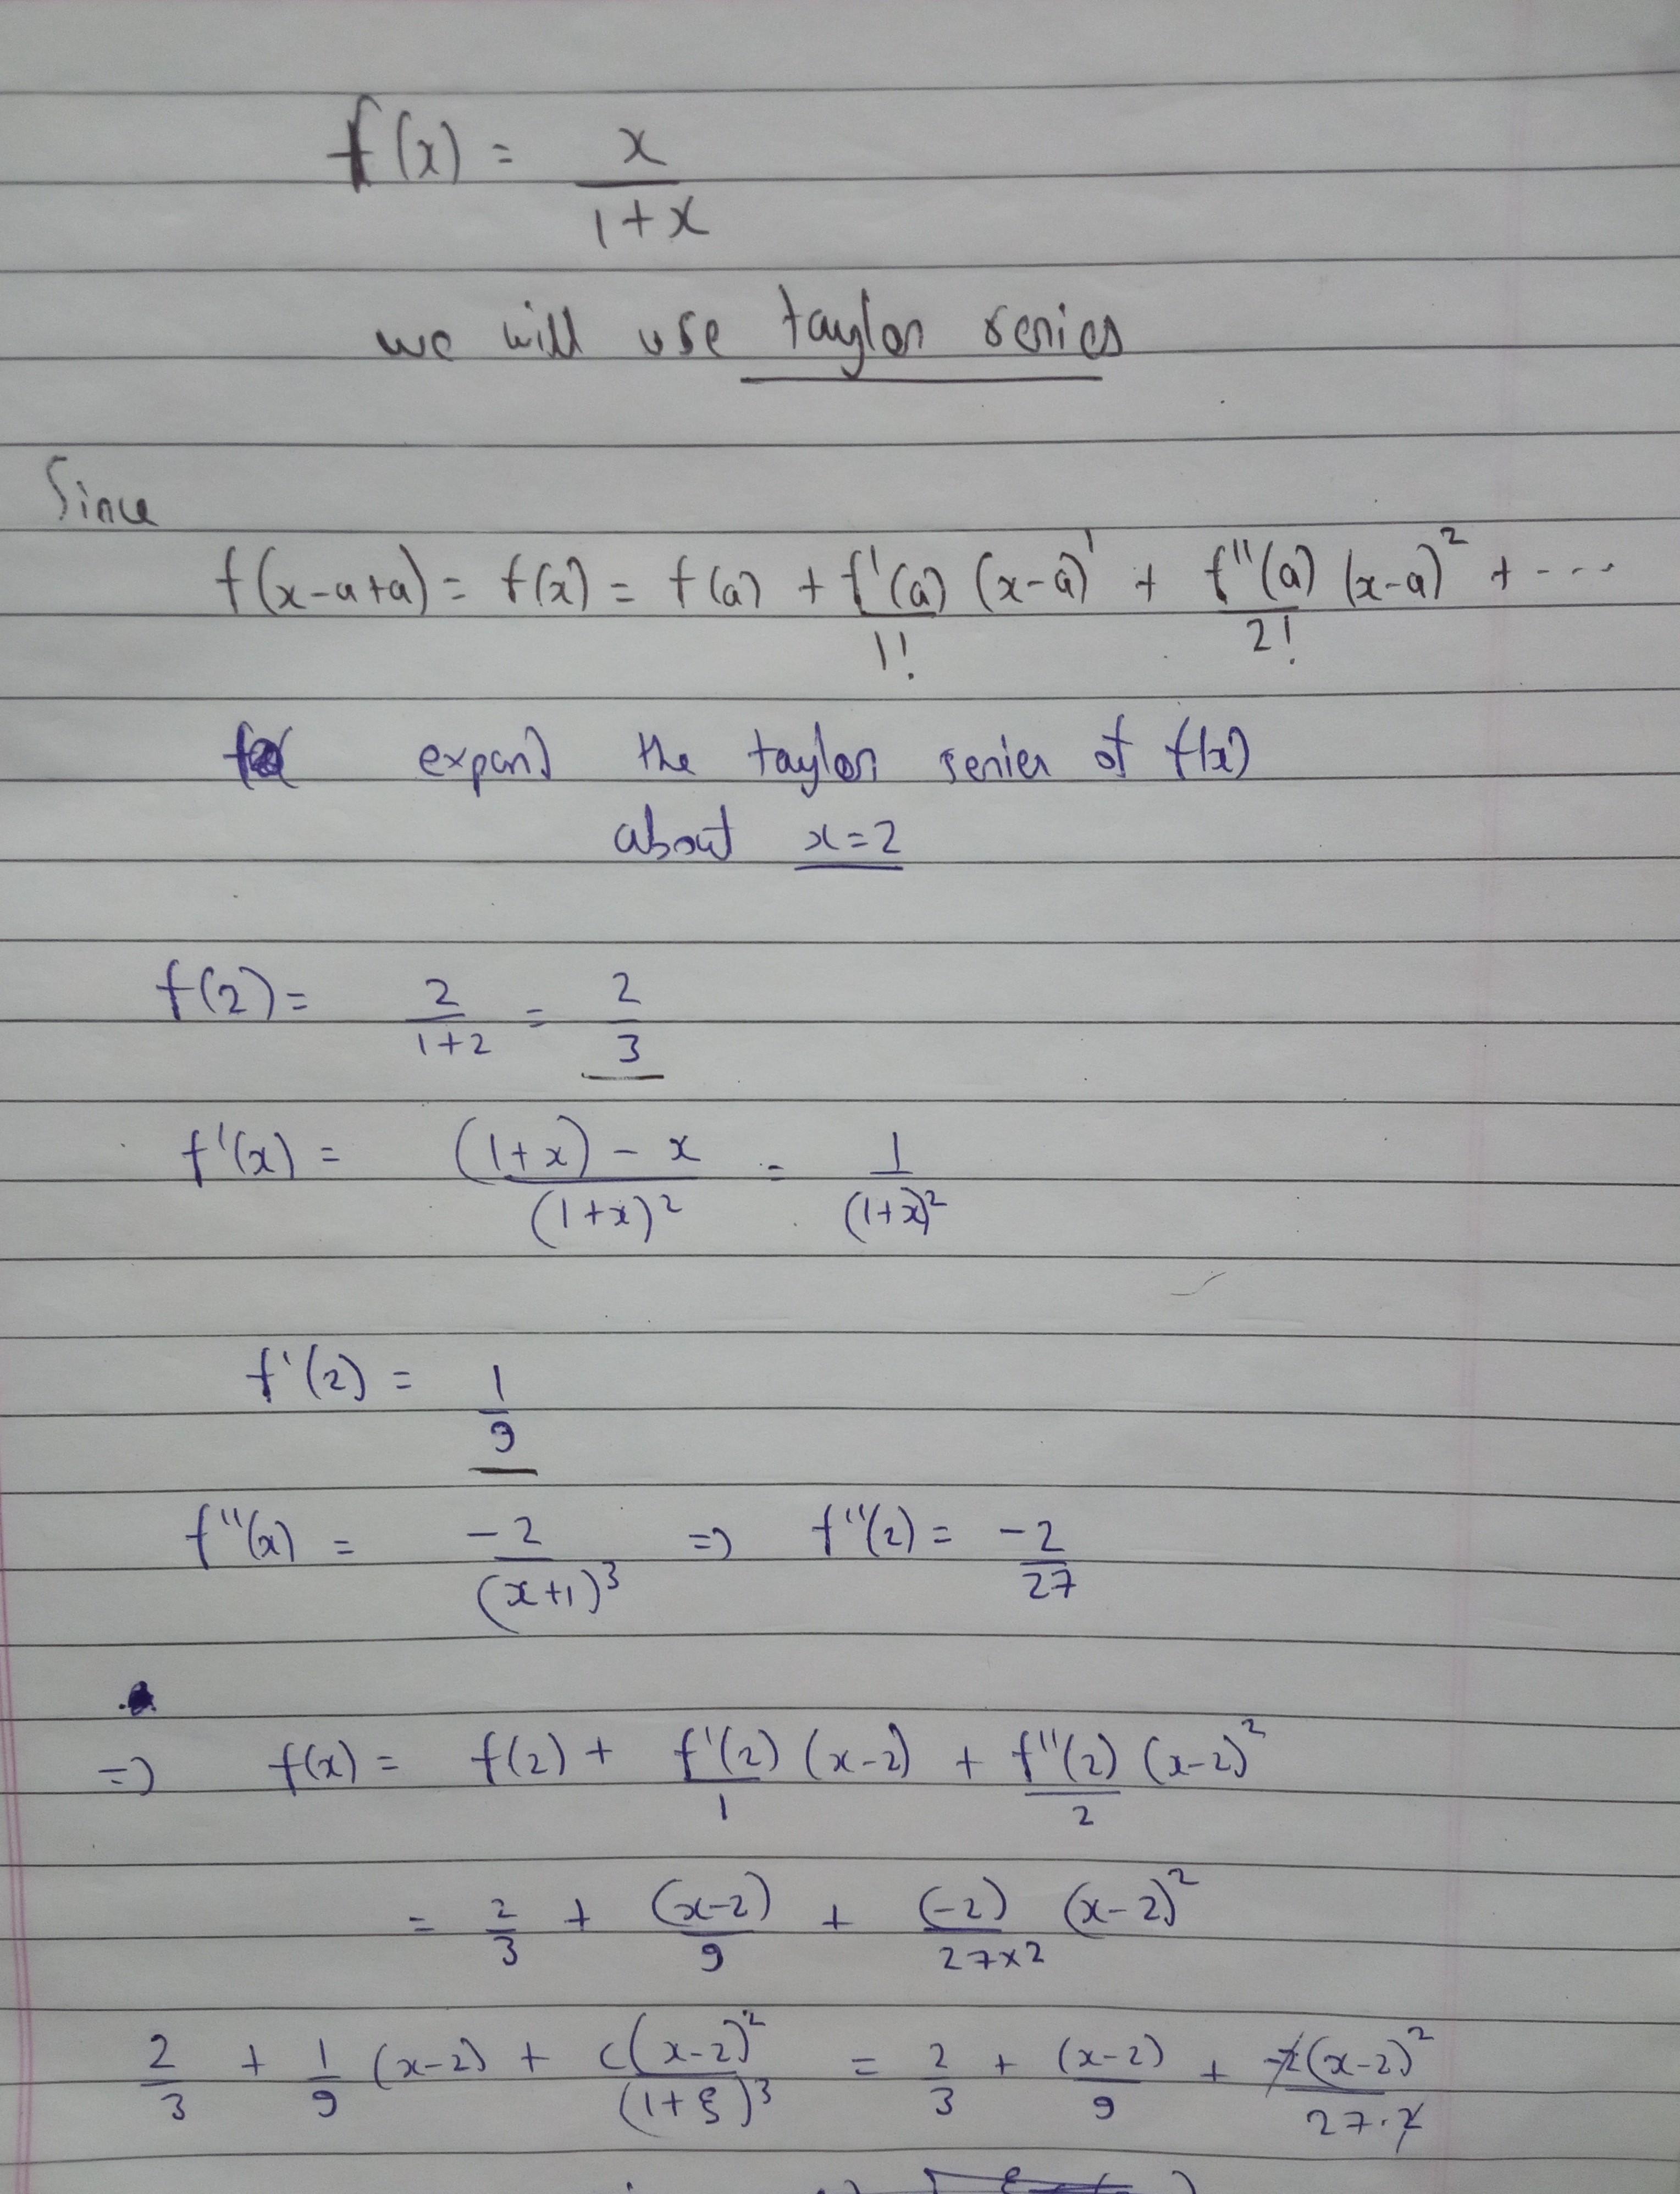 f(x) = x / (1+x)
we will use taylor series
Since
f(x-a+a) = f(x) = f(a) + f'(a)/1! (x-a)¹ + f''(a)/2! (x-a)² + ---
expand the taylor series of f(x)
about x=2
f(2) = 2/(1+2) = 2/3
f'(x) = ((1+x) - x)/(1+x)² = 1/(1+x)²
f'(2) = 1/9
f''(x) = -2/(x+1)³ => f''(2) = -2/27
=> f(x) = f(2) + f'(2)/1 (x-2) + f''(2)/2 (x-2)²
= 2/3 + (x-2)/9 + (-2)/(27×2) (x-2)²
2/3 + 1/9 (x-2) + c(x-2)²/(1+ξ)³ = 2/3 + (x-2)/9 + -2(x-2)²/(27.2)